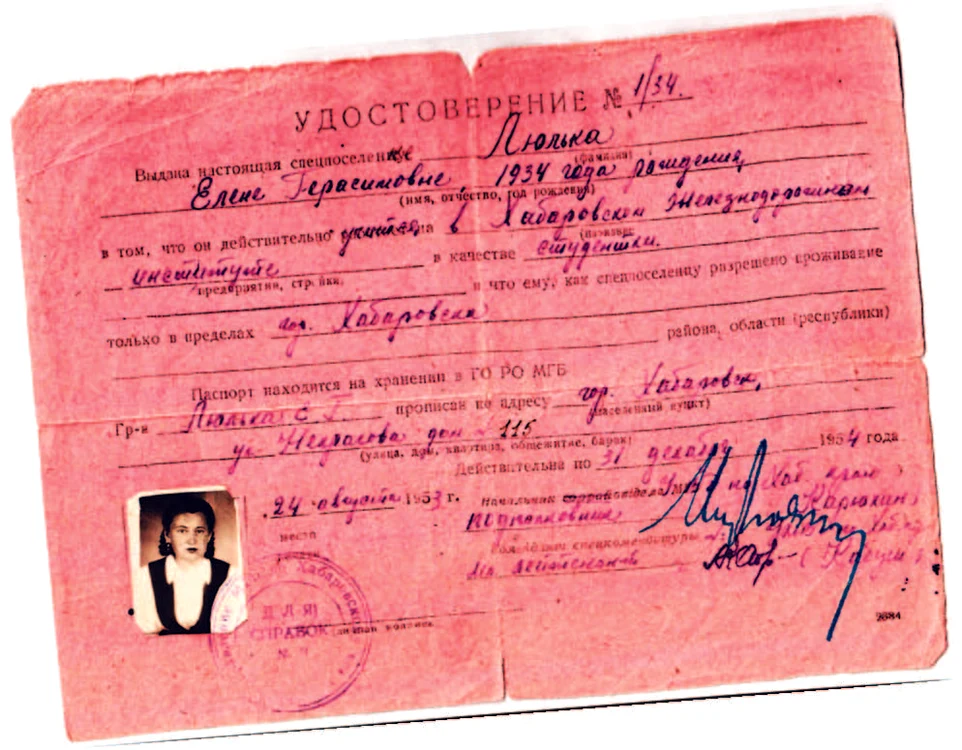 УДОСТОВЕРЕНИЕ № 1/34.
Выдана настоящая спецпоселенке Люлька
(фамилия)
Елене Герасимовне 1934 года рождения,
(имя, отчество, год рождения)
в том, что он действительно учится в Хабаровском Железнодорожном
институте в качестве студентки.
предприятия, стройки,
и что ему, как спецпоселенцу разрешено проживание
только в пределах гор. Хабаровска
района, области (республики)
Паспорт находится на хранении в ГО РО МГБ
Гр-н Люлька Е Г прописан по адресу гор. Хабаровск,
(населенный пункт)
ул Некрасова дом 115
(улица, дом, квартира, общежитие, барак)
Действительна по 31 декабря 1954 года
24 августа 1953 г.
Начальник
место
подполковник Карюкин
Комендант спецкомендатуры
Мл. лейтенант
ДЛЯ
СПРАВОК
(личная подпись
2684